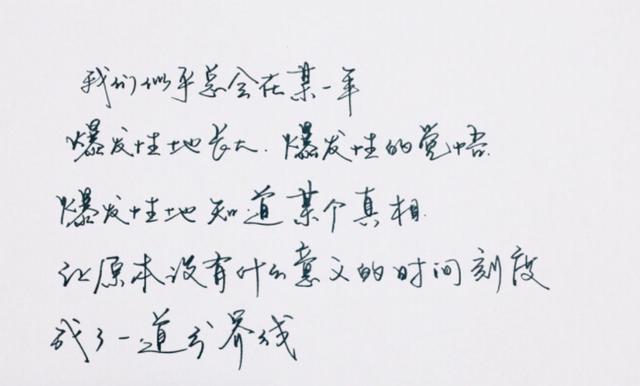 我们似乎总会在某一年
爆发性地长大.爆发性的觉悟.
爆发性地知道某个真相.
让原本没有什么意义的时间刻度
成了一道分界线